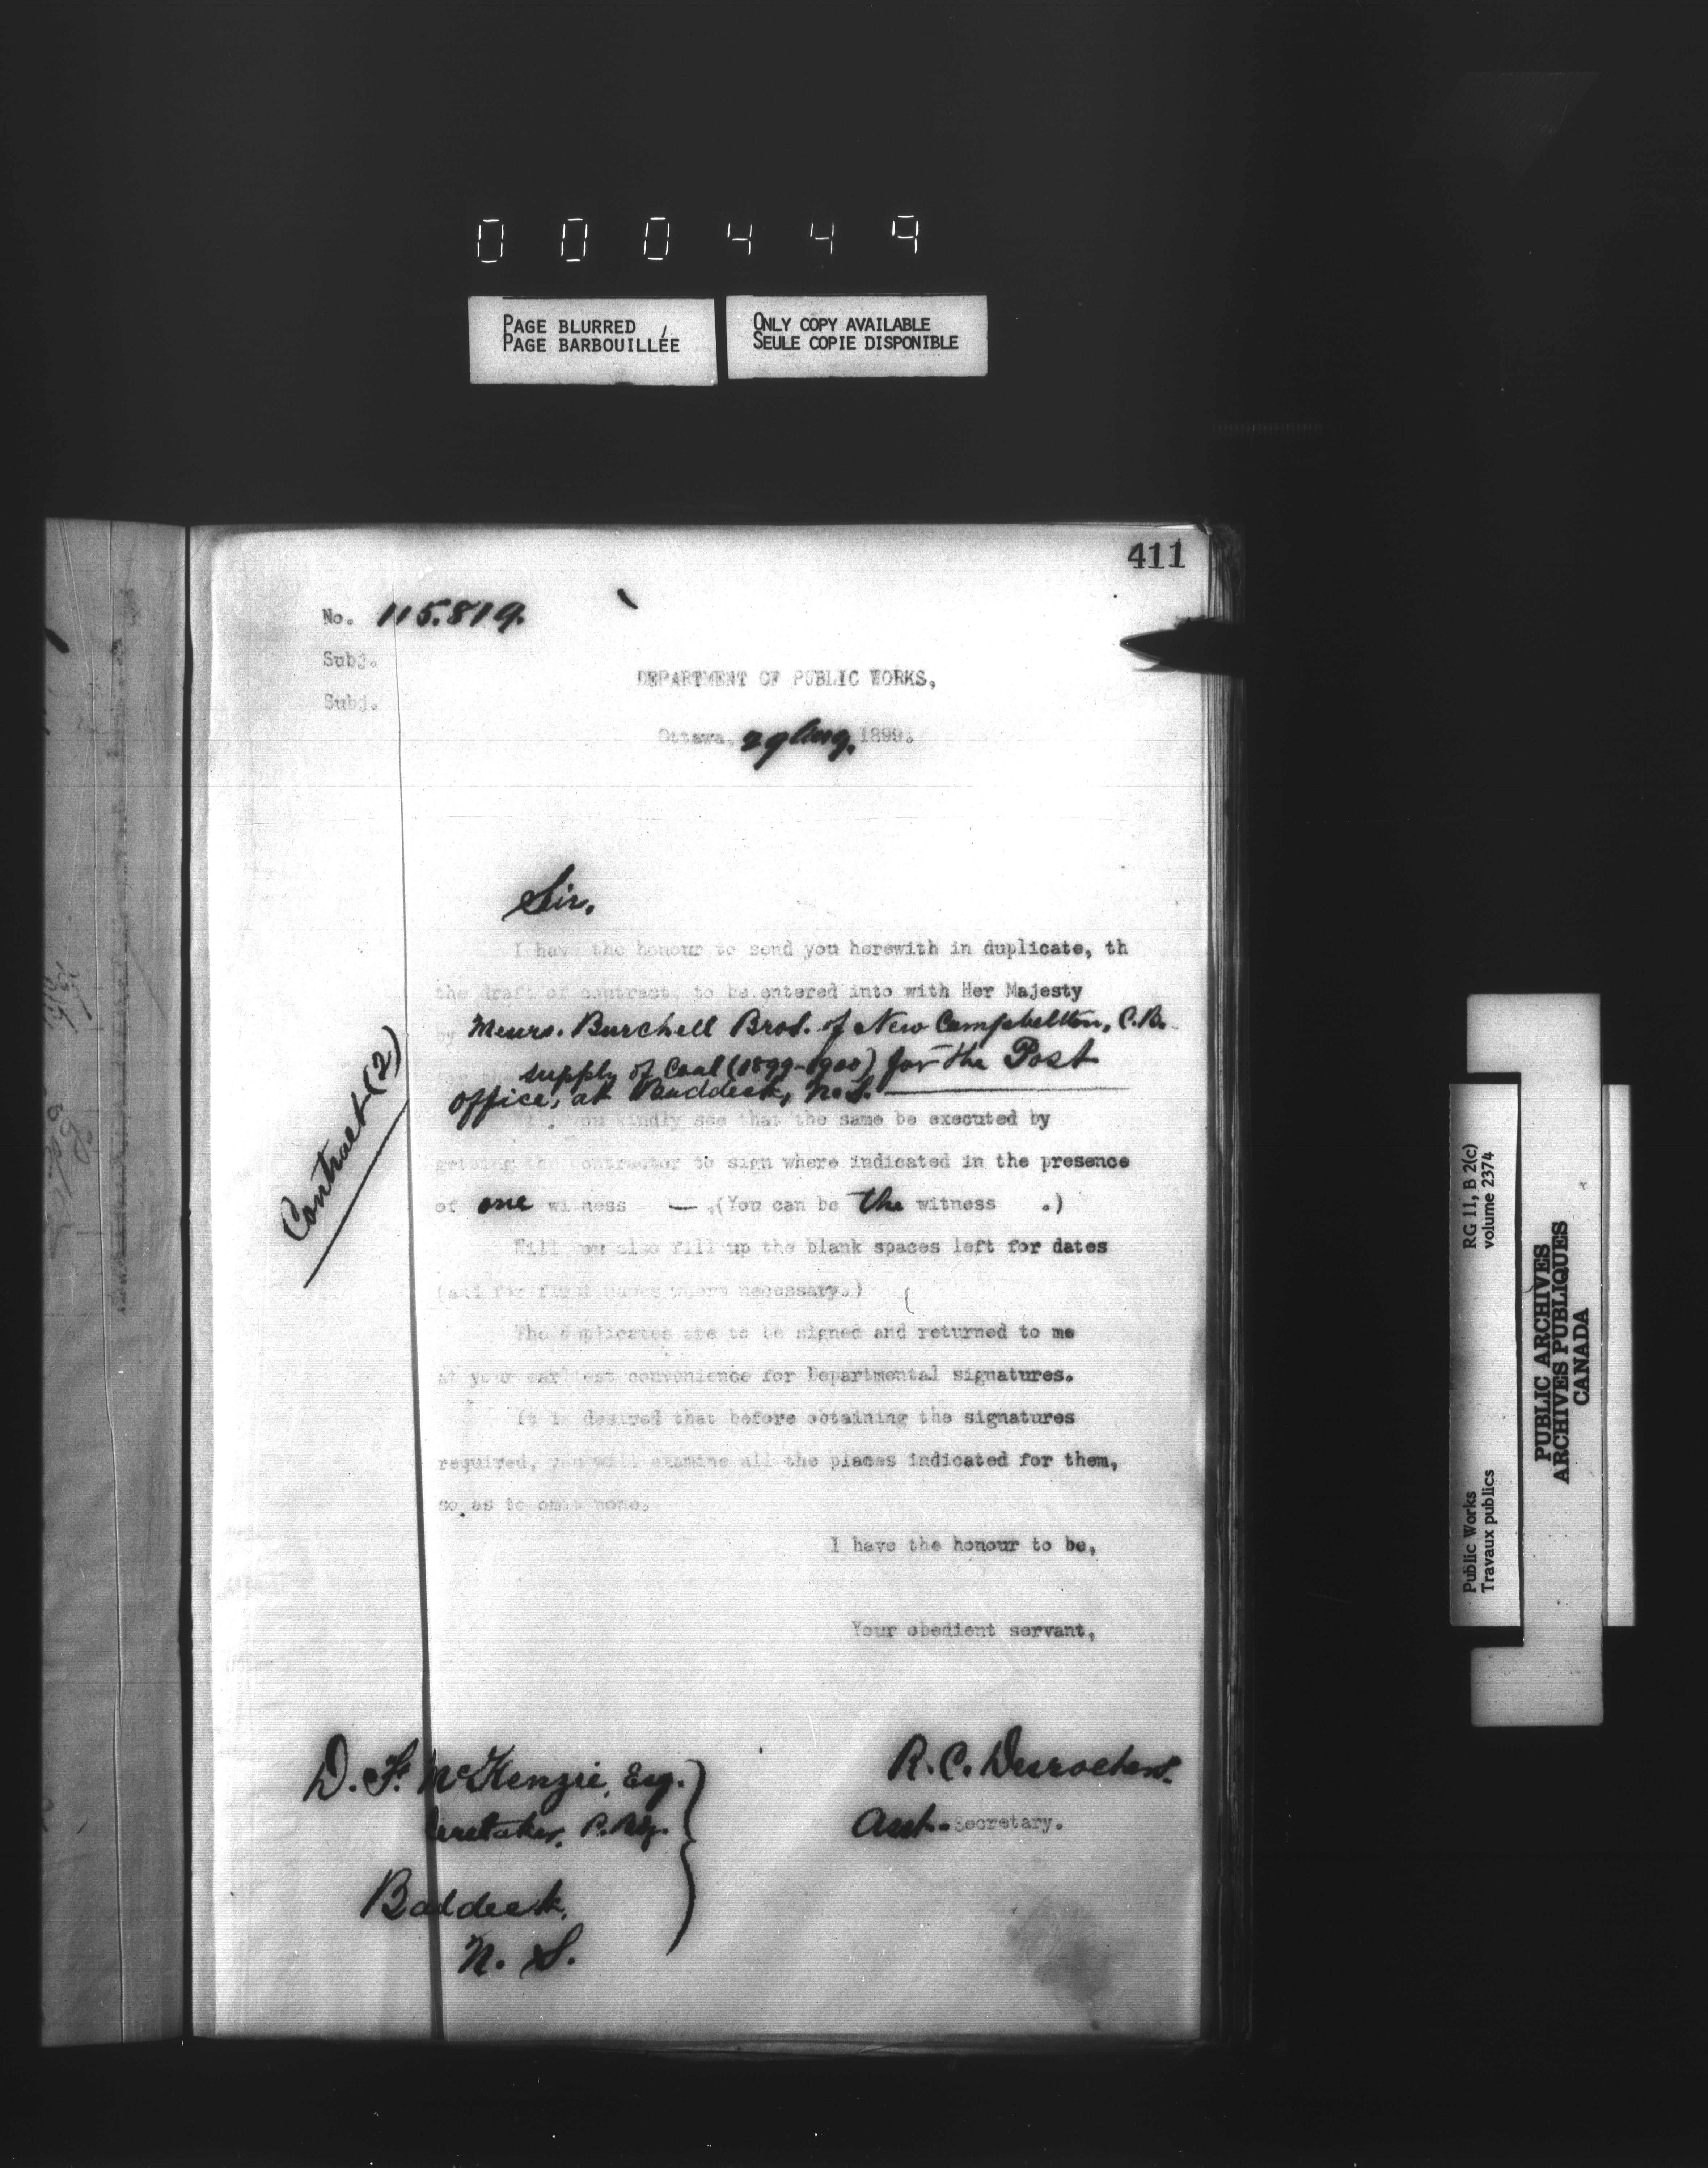 000449
PAGE BLURRED
PAGE BARBOUILLÉE
ONLY COPY AVAILABLE
SEULE COPIE DISPONIBLE
411
No. 115.819.
Subj.
DEPARTMENT OF PUBLIC WORKS,
Subj.
Ottawa, 29 Aug. 1899.
Sir,
I have the honour to send you herewith in duplicate, th
the draft of contract, to be entered into with Her Majesty
by Messrs. Burchell Bros. of New Campbellton, C.B.
supply of Coal (1899-1900) for the Post
Office, at Baddeck, N.S.
Will you kindly see that the same be executed by
getting the contractor to sign where indicated in the presence
of one witness — .(You can be the witness .)
Will you also fill up the blank spaces left for dates
(and for first names where necessary.)
The duplicates are to be signed and returned to me
at your earliest convenience for Departmental signatures.
It is desired that before obtaining the signatures
required, you will examine all the places indicated for them,
so as to omit none.
I have the honour to be,
Your obedient servant,
R. C. Desrochers.
Asst. Secretary.
D. F. McKenzie, Esq.
Caretaker, P. Bdg.
Baddeck,
N. S.
Contract (2)
Public Works
Travaux publics
RG 11, B 2(c)
volume 2374
PUBLIC ARCHIVES
ARCHIVES PUBLIQUES
CANADA